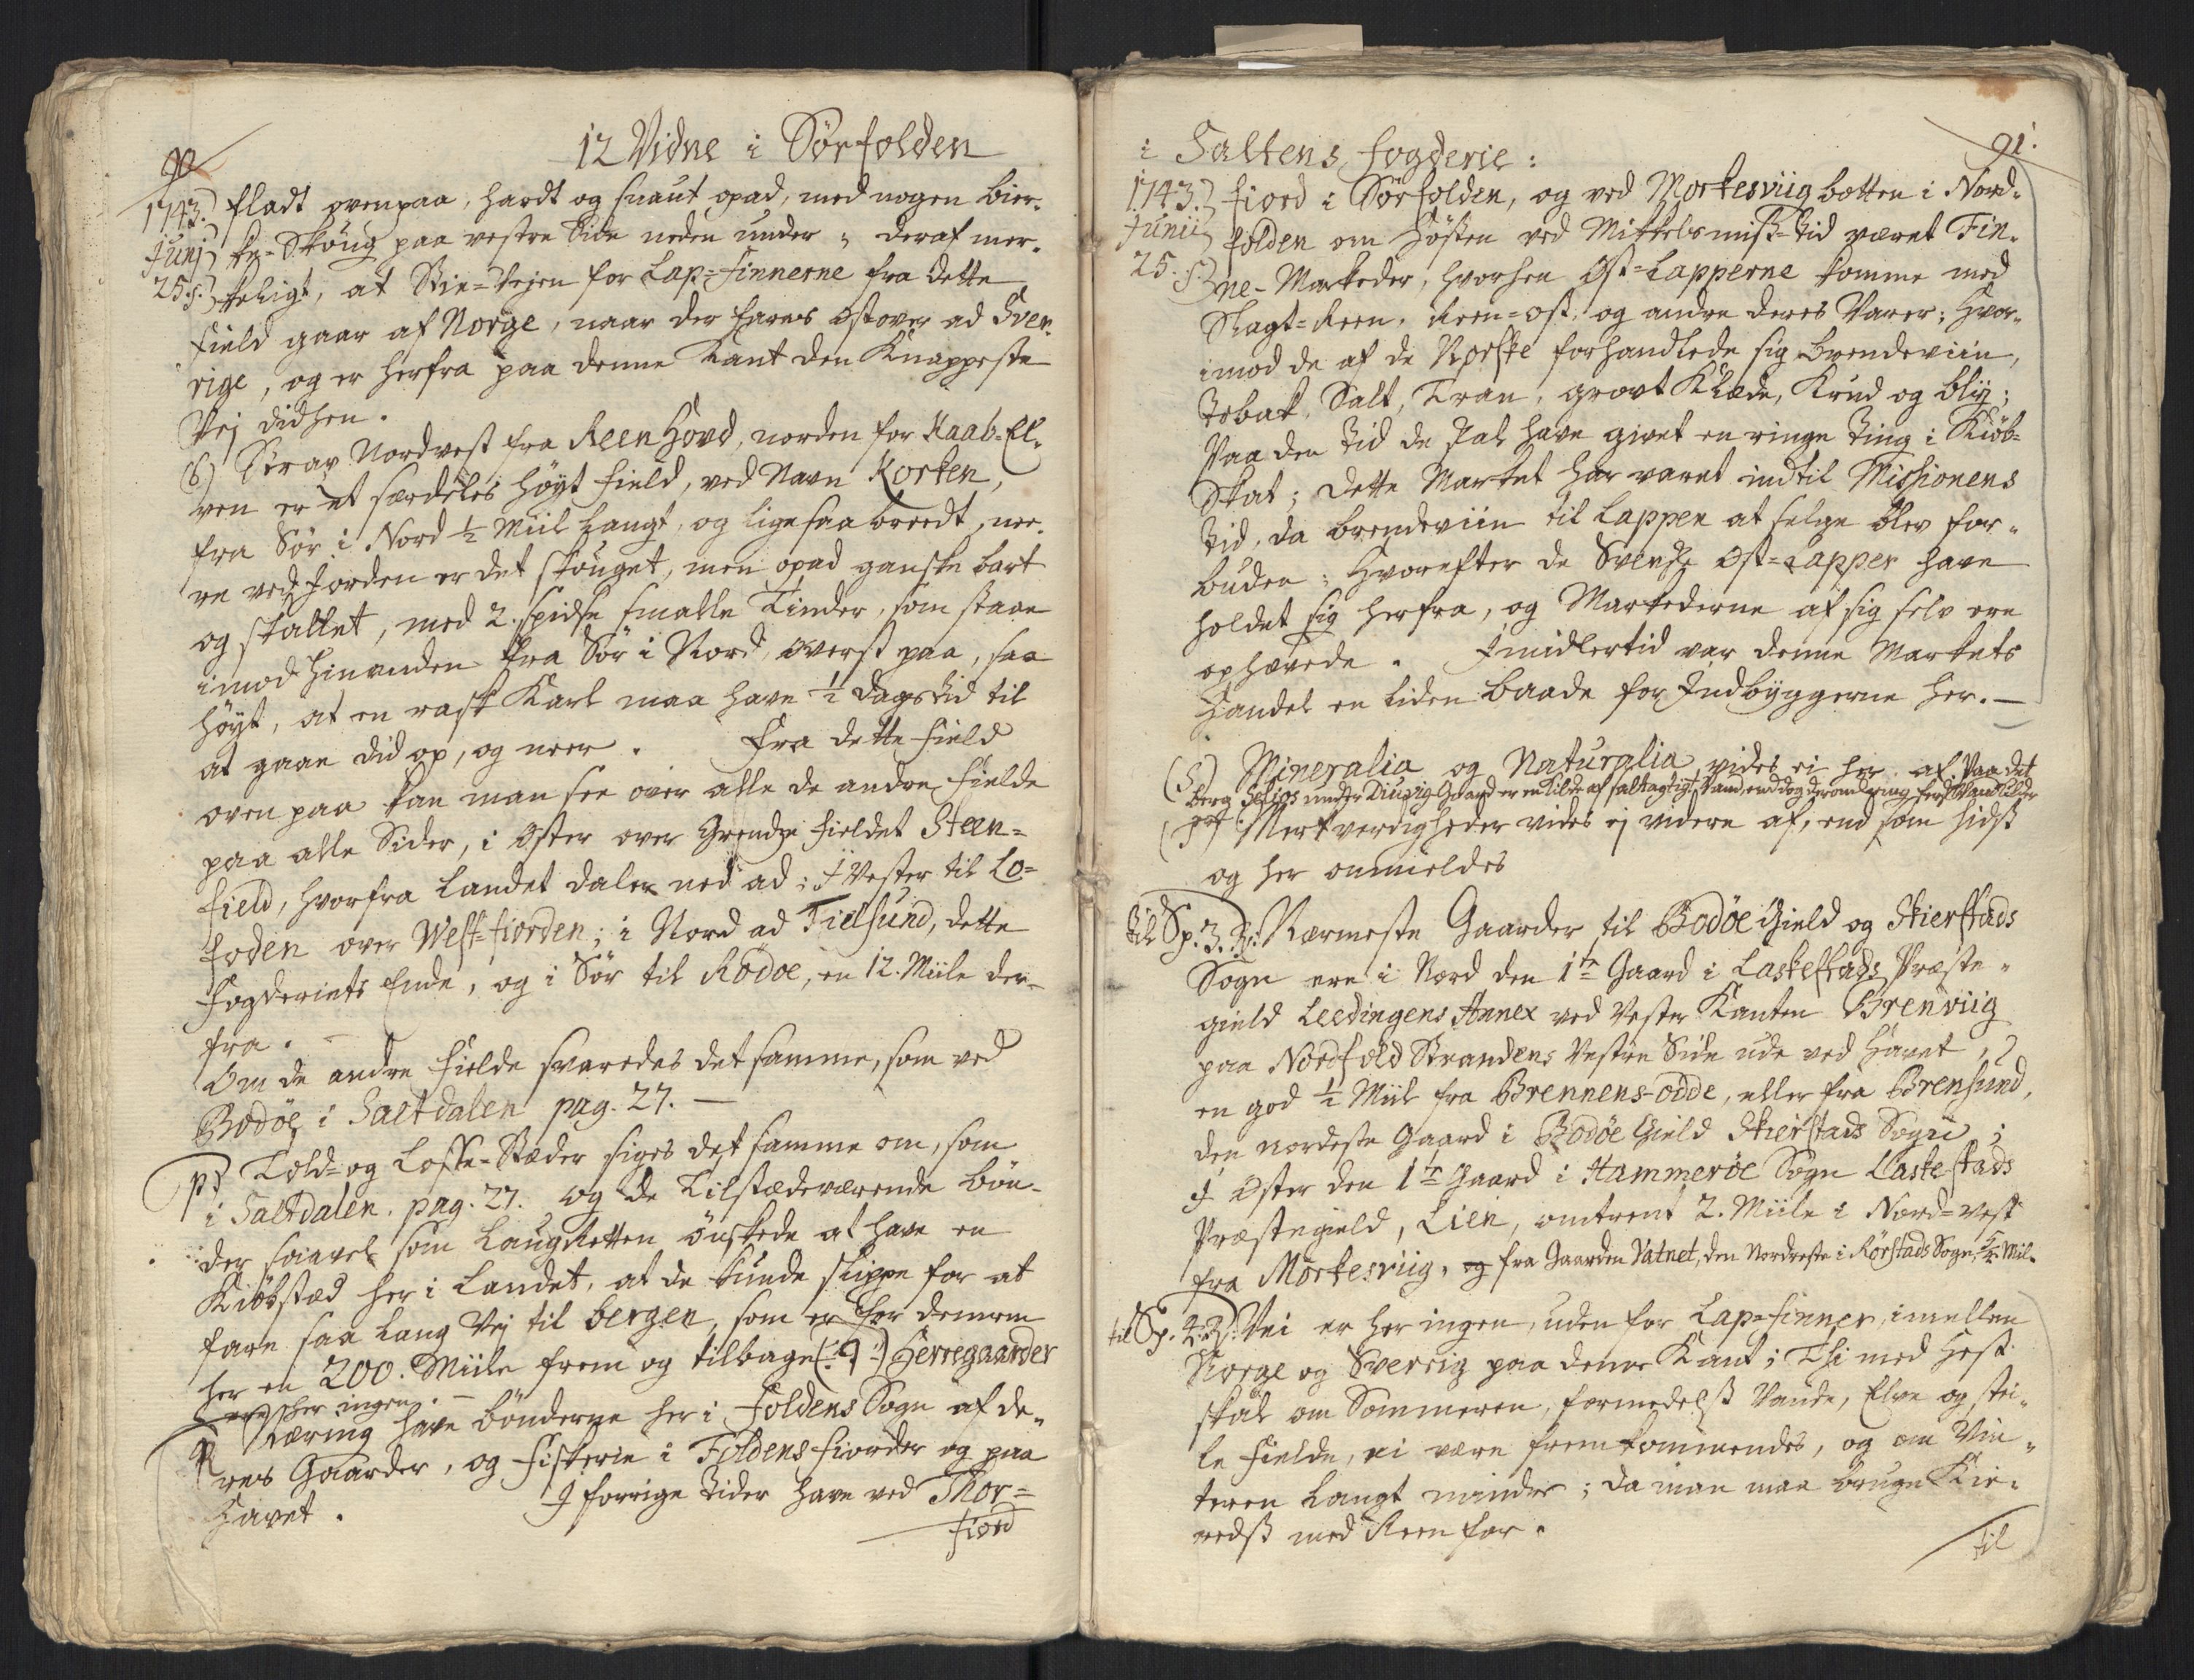 90
12 Vidne i Sørfolden
1743.) fladt ovenpaa, hardt og snaut opad, med nogen bier-
Junj) ke-Skoug paa vestre Side neden under; deraf mer-
25.s.) keligt, at Skie-Vejen for Lap-Finnerne fra dette
Field gaar af Norge, naar der fares Østover ad Sver-
rige, og er herfra paa denne Kant den Knappeste
Vej did hen.
(6) Strax Nordvest fra Reen Hovd, norden for Kaab-El-
ven er et særdeles høyt Field, ved Navn Korken,
fra Sør i Nord ½ Miil Langt, og lige saa breedt, nee-
re ved Jorden er det skouget, men opad ganske bart
og skallet, med 2. spidse smalle Tinder, som staae
imod hinanden fra Sør i Nord, øverst paa, saa
høyt, at en rask Karl maa have ½ Dags Tid til
at gaae did op, og neer. Fra dette Field
oven paa kan man see over alle de andre Fielde
paa alle Sider, i Øster over Grendze Fieldet Steen-
field, hvorfra Landet daler ned ad; I Vester til Lo-
foden over West-fiorden; i Nord ad Tielsund, dette
Fogderiets Ende, og i Sør til Rødøe, en 12. Miile der-
fra.
Om de andre Fielde svaredes det samme, som ved
Bodøe i Saltdalen pag. 27.
p) Told- og Losse-Stæder siges det samme om, som
i Saltdalen. pag. 27. og de Tilstædeværende Bøn-
der saavel som LaugRetten ønskede at have en
Kiøbstæd her i Landet, at de kunde slippe for at
fare saa Lang Vej til Bergen, som er for dennem
her en 200. Miile frem og tilbage (:q:) Herregaarder
ere her ingen.
Næring have Bønderne her i Foldens Sogn af de-
res Gaarder, og Fiskerie i Foldens Fiorder og paa
Havet. I forrige Tider have ved Thor-
fiord
91.
i Saltens Fogderie:
1743.) fiord i Sørfolden, og ved Morkesviig botten i Nord-
Junii) folden om Høsten ved Mikkelsmiss-Tid været Fin-
25. s.) ne-Markeder, hvorhen Øst-Lapperne komme med
Slagt-Reen, Reen-ost, og andre deres Varer; Hvor-
imod de af de Norske forhandlede sig Brendeviin,
Tobak, Salt, Tran, grovt Klæde, Krud og Bly;
Paa den Tid de skal have givet en ringe Ting i Kiøb-
Skat; dette Market har varet indtil Missionens
Tid, da Brendeviin til Lappen at selge blev for-
buden; Hvorefter de Svenske Øst-Lapper have
holdet sig herfra, og Markederne af sig selv ere
ophævede. Imidlertid var denne Markets
Handel en liden Baade for Indbyggerne her.
(s) Mineralia og Naturalia vides ei her af. Paa det
Berg under Gaard er en Kilde af saltagtigt Vand, endog deromkring fersk Vand Kilder
Merkverdigheder vides ej videre af, end som hidst
og her ommeldes
til Sp. 3. Nærmeste Gaarder til Bodøe Gield og Skierstads
Sogn ere i Nord den 1te Gaard i Laskestads Præste-
gield Leedingens Annex ved Vester Kanten Brenviig
paa Nordfold Strandens Vestre Side ude ved Havet,
en god ½ Miil fra Brennens-odde, eller fra Brensund,
den nordeste Gaard i Bodøe Gield Skierstads Sogn;
I Øster den 1te Gaard i Hammerøe Sogn Laskestads
Præstegield, Lien, omtrent 2. Miile i Nord-vest
fra Mørkesviig, og fra Gaarden Vatnet, den Nordreste i Rørstads Sogn, Mil.
til Sp. 4. Vei er her ingen, uden for Lap-Finner, imellem
Norge og Sverrig paa denne Kant; Thi med Hest
skal om Sommeren, formedelst Vande, Elve og stei-
le Fielde, ei være fremkommendes, og om Vin-
teren Langt mindre; da man maa bruge Kie-
redss med Reen for.
til